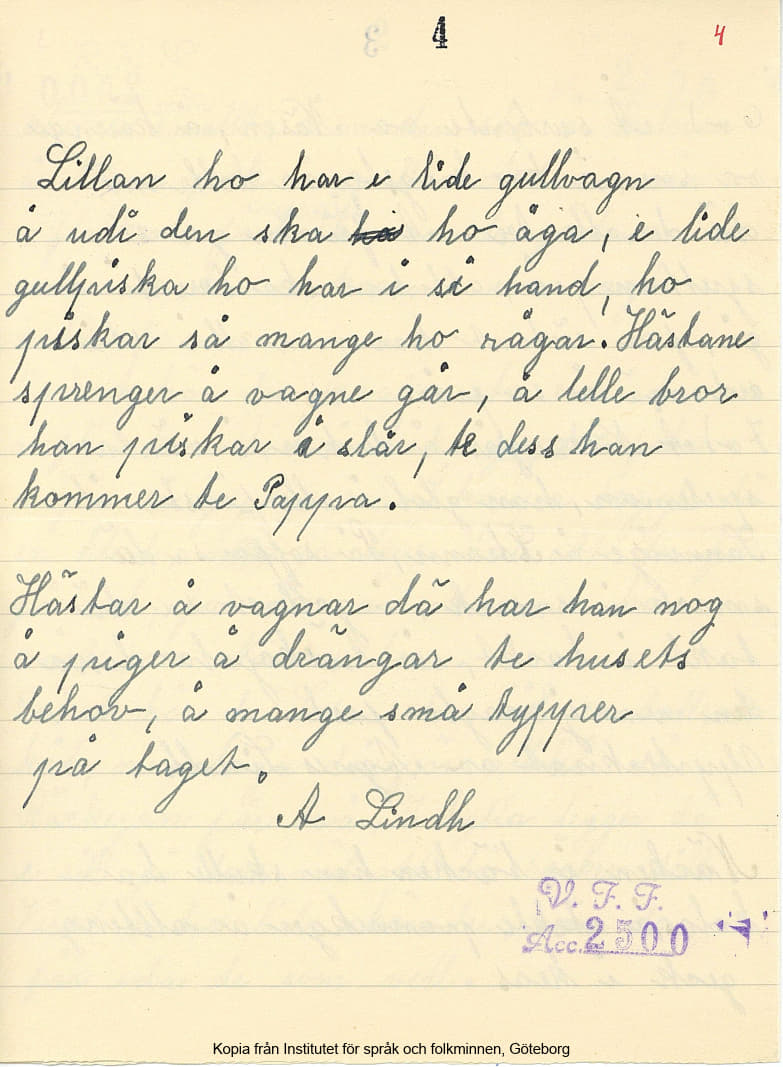 4
4
Lillan ho har e lide gullvagn
å udi den ska ho åga, e lide
gullpiska ho har i si hand, ho
piskar så mange ho rågar. Hästane
sprenger å vagne går, å lelle bror
han piskar å slår, te dess han
kommer te Pappa.
Hästar å vagnar dä har han nog
å piger å drängar te husets
behov, å mange små typper
på taget.
A Lindh
V. F. F.
Acc. 2500
Kopia från Institutet för språk och folkminnen, Göteborg